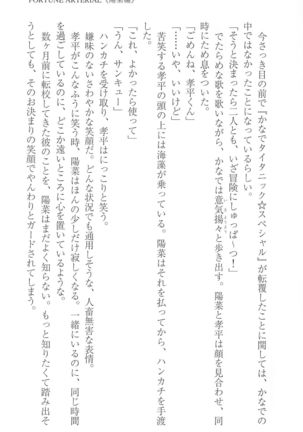 FORTUNE ARTERIAL《陽菜編》
今さっき目の前で『かなでタイタニック☆スペシャル』が転覆したことに関しては、かなでの
中ではなかったことになっているらしい。
「そうと決まったら二人とも、いざ冒険にしゅっぱ〜つ！」
でたらめな歌を歌いながら、かなでは意気揚々と歩き出す。陽菜と孝平は顔を見合わせ、同
時にため息をついた。
「ごめんね、孝平くん」
「……や、いいけど」
苦笑する孝平の頭の上には海藻が乗っている。陽菜はそれを払ってから、ハンカチを手渡
した。
「これ、よかったら使って」
「うん、サンキュー」
ハンカチを受け取り、孝平はにっこりと笑う。
嫌味のないさわやかな笑顔だ。どんな状況でも通用しそうな、人畜無害な表情。
孝平がこんなふうに笑う時、陽菜はほんの少しだけ寂しくなる。一緒にいるのに、同じ時間
を過ごしているのに、どこか遠いところに心を置いているような。
数ヶ月前に転校してきた彼のことを、陽菜はまだよく知らない。もっと知りたくて踏み出そ
うとしても、そのお決まりの笑顔でやんわりとガードされてしまう。